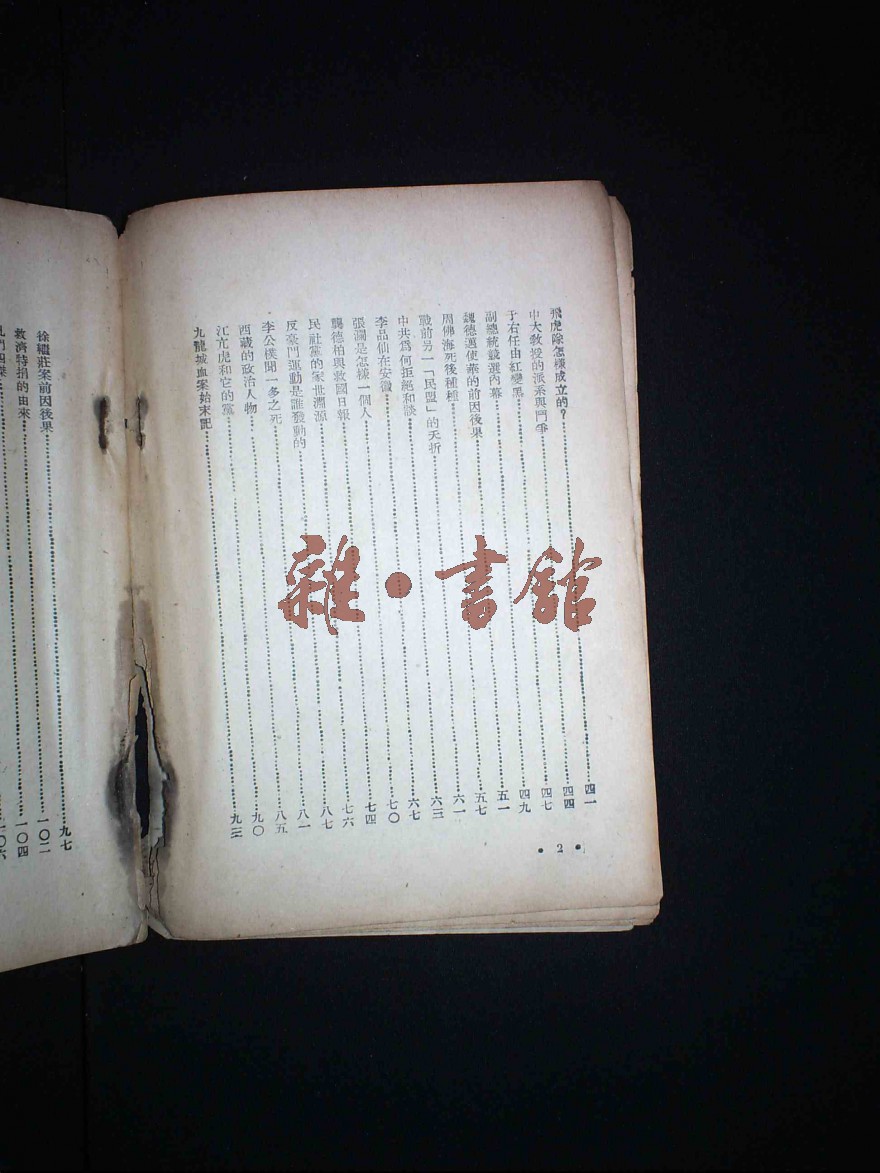 飛虎隊怎樣成立的?……四一
中大教授的派系與鬥爭……四四
于右任由紅變黑……四七
副總統競選內幕……四九
魏德邁使華的前因後果……五一
周佛海死後種種……五七
戰前另一「民盟」的夭折……六一
中共爲何拒絕和談……六三
李品仙在安徽……六七
張瀾是怎樣一個人……七〇
龔德柏與救國日報……七四
民社黨的家世淵源……七六
反豪門運動是誰發動的……八七
李公樸聞一多之死……八一
西藏的政治人物……八五
江亢虎和它的黨……九〇
九龍城血案始末記……九三
• 2 •
九七
徐繼莊案前因後果……一〇二
救濟特捐的由來……一〇四
一〇六
雜•書館